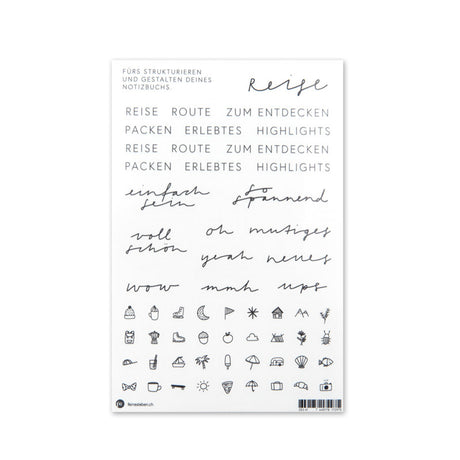 FÜRS STRUKTURIEREN
UND GESTALTEN DEINES
NOTIZBUCHS
Reise
REISE ROUTE ZUM ENTDECKEN
PACKEN ERLEBTES HIGHLIGHTS
REISE ROUTE ZUM ENTDECKEN
PACKEN ERLEBTES HIGHLIGHTS
einfach
sein
so
spannend
voll
schön
oh mutiges
yeah neues
wow mmh ups
feinesleben.ch